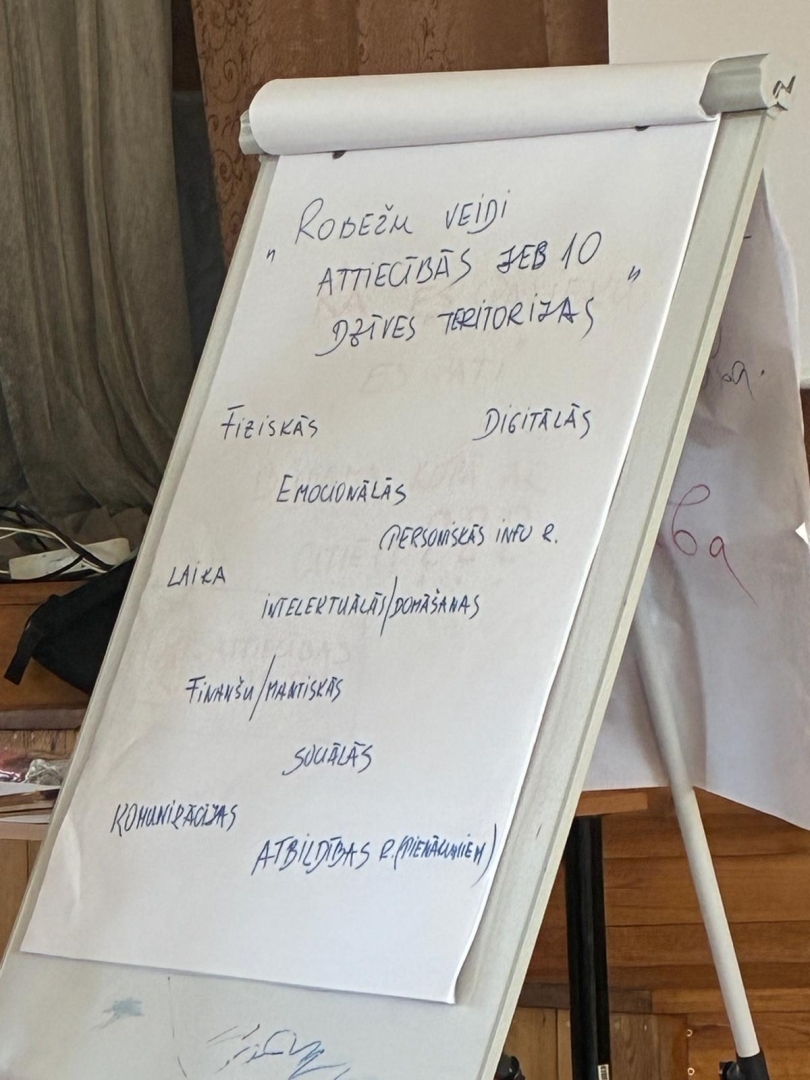 "ROBEŽU VEIDI
ATTIECĪBĀS JEB 10
DZĪVES TERITORIJAS"
FIZISKĀS
DIGITĀLĀS
EMOCIONĀLĀS
(PERSONISKĀS INFO R.
LAIKA
INTELEKTUĀLĀS/DOMĀŠANAS
FINANŠU/MANTISKĀS
SOCIĀLĀS
KOMUNIKĀCIJAS
ATBILDĪBAS R. (PIENĀKUMIEM)